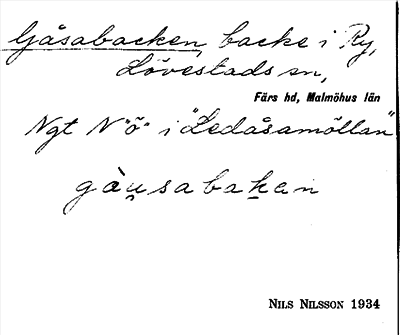 Gåsabacken, backe i Ry,
Lövestads sn,
Färs hd, Malmöhus län
Ngt N "ö" i "Ledåsamöllan"
gàu̯sabaḵan
NILS NILSSON 1934